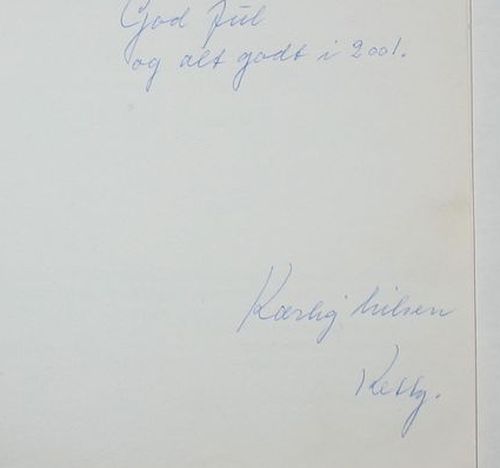 God Jul
og alt godt i 2001.
Kærlig hilsen
Ketty.